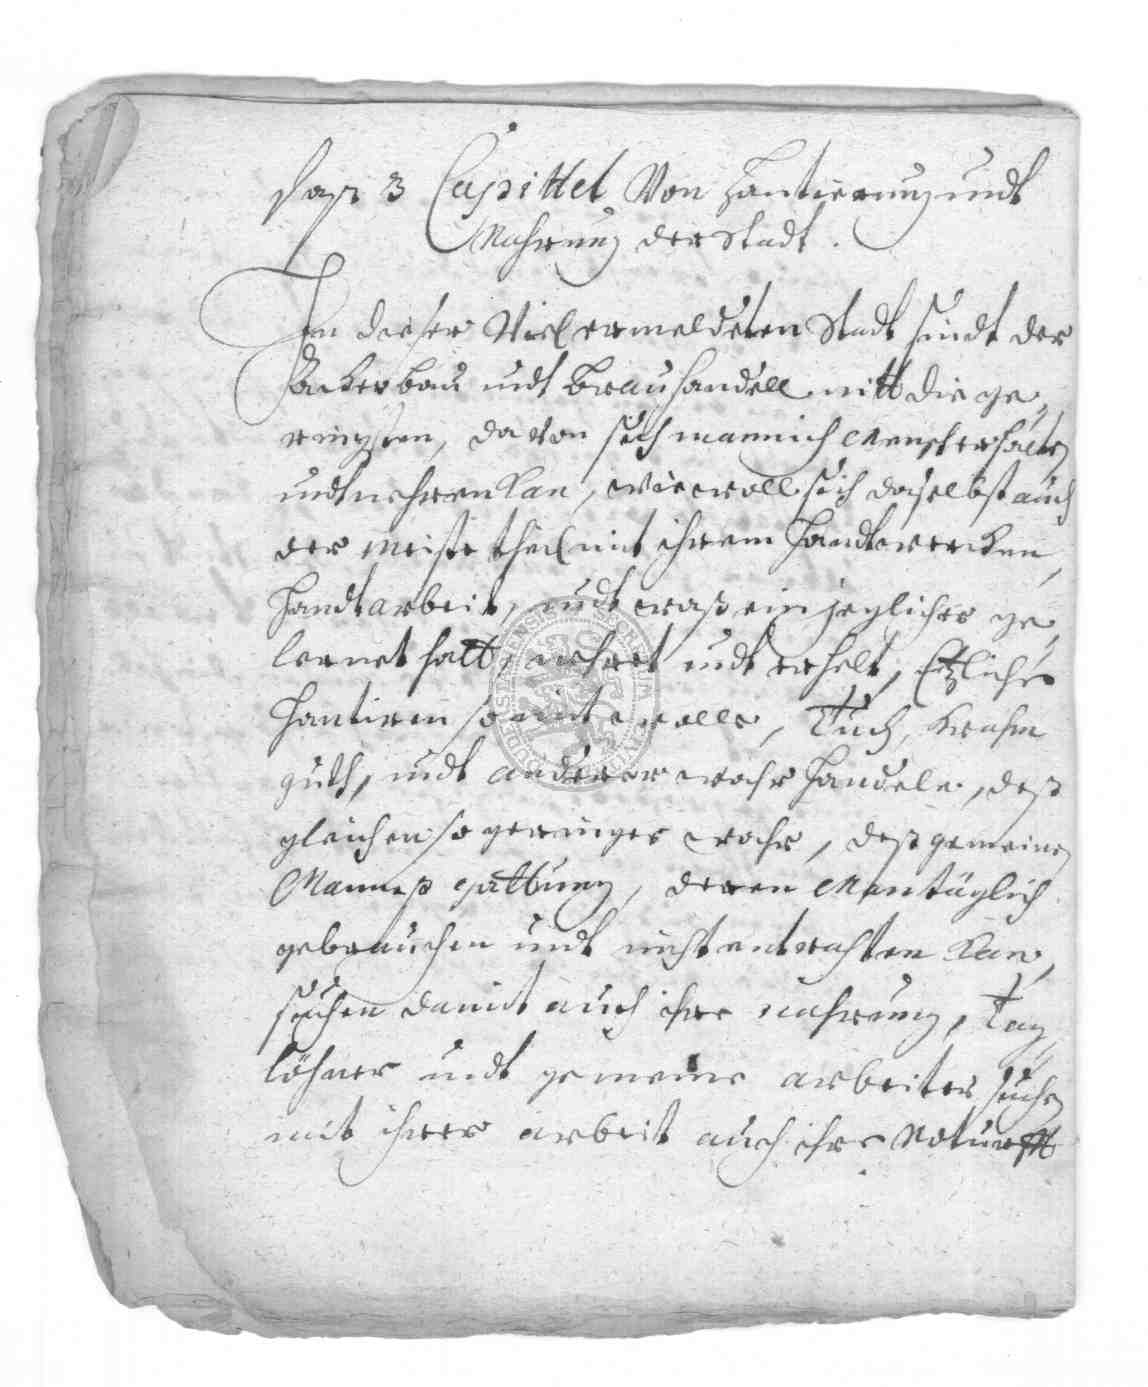 Daß 3 Capittel Von Hantierung undt
Nahrung der Stadt.
In dieser Viel ermeldeten Stadt sindt der
Ackerbau undt Brauhandell nitt die ge„
ringsten, davon sich mannich Mensch erhalten
undt nehren kan, wiewoll sich daselbst auch
der meiste theil mit ihrem Handtwercken,
Handtarbeit, undt waß ein jeglicher ge„
lernet hatt, nehret undt erhelt, Etzliche
Hantiren so mit wolle, Tuch, krahm
guth, undt anderer wahr Handele, deß
gleichen so geringer wahr, deß gemeinen
Manneß gattung, deren Man täglich
gebrauchen undt nicht entrahten kan,
suchen damit auch ihre nahrung, Tag„
löhner undt gemeine arbeiter suchen
mit ihrer arbeit auch ihre Noturfft